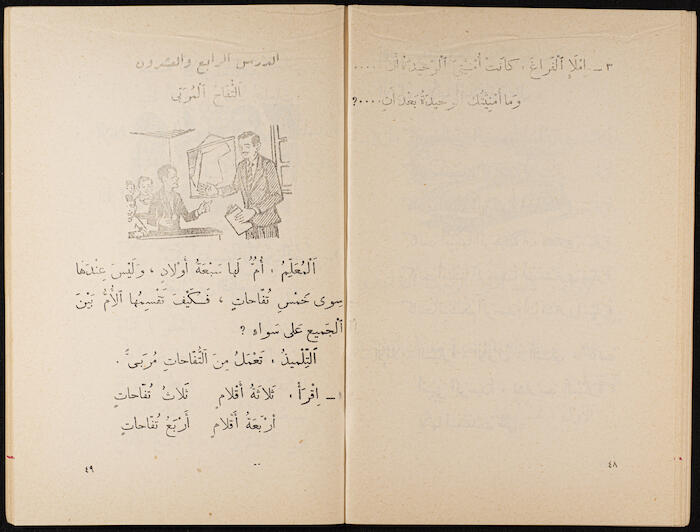 ٣ ـ اِمْلَإِ ٱلْفَرَاغَ ، كَانَتْ أُمْنِيَتِيَ ٱلْوَحِيدَةُ أَنْ ....
وَمَا أُمْنِيَتُكَ ٱلْوَحِيدَةُ بَعْدَ أَنِ ....؟
٤٨
الدرس الرابع والعشرون
اَلتُّفَّاحُ ٱلْمُرَبَّى
اَلْمُعَلِّمُ ، أُمٌّ لَهَا سَبْعَةُ أَوْلَادٍ ، وَلَيْسَ عِنْدَهَا
سِوَى خَمْسِ تُفَّاحَاتٍ ، فَكَيْفَ تَقْسِمُهَا ٱلْأُمُّ بَيْنَ
ٱلْجَمِيعِ عَلَى سَوَاءٍ ؟
اَلتِّلْمِيذُ ، تَعْمَلُ مِنَ ٱلتُّفَّاحَاتِ مُرَبَّىً .
١ ـ اِقْرَأْ ، ثَلَاثَةُ أَقْلَامٍ ثَلَاثُ تُفَّاحَاتٍ
أَرْبَعَةُ أَقْلَامٍ أَرْبَعُ تُفَّاحَاتٍ
٤٩